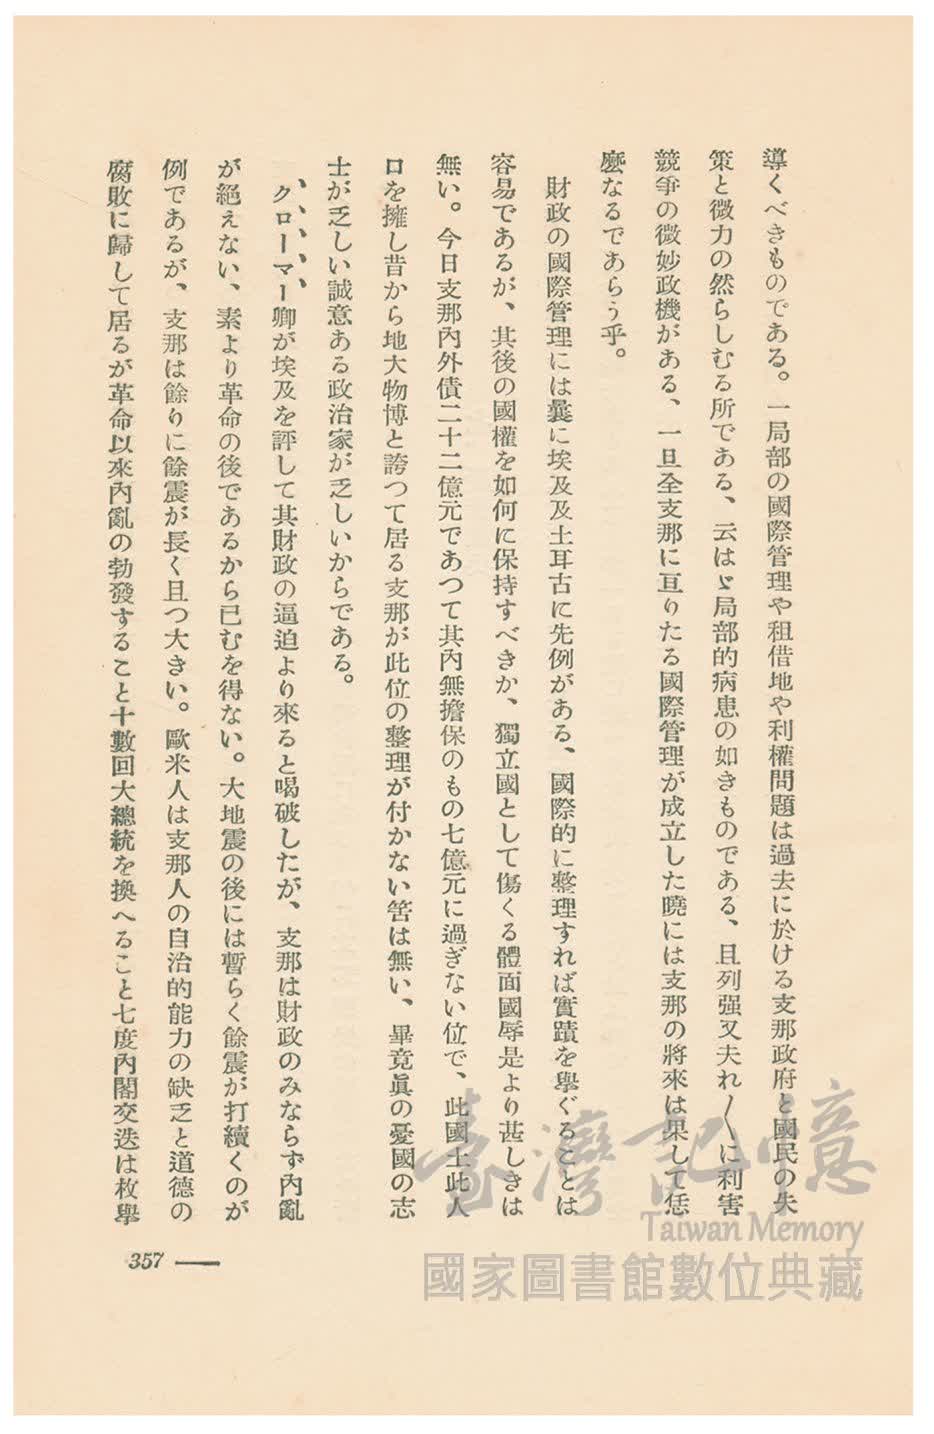 導くべきものである。一局部の國際管理や租借地や利權問題は過去に於ける支那政府と國民の失
策と微力の然らしむる所である、云はゞ局部的病患の如きものである、且列强又夫れ〱に利害
競爭の微妙政機がある、一旦全支那に亘りたる國際管理が成立した曉には支那の將來は果して恁
麽なるであらう乎。
財政の國際管理には曩に埃及及土耳古に先例がある、國際的に整理すれば實蹟を擧ぐることは
容易であるが、其後の國權を如何に保持すべきか、獨立國として傷くる體面國辱是より甚しきは
無い。今日支那內外債二十二億元であつて其內無擔保のもの七億元に過ぎない位で、此國土此人
口を擁し昔から地大物博と誇つて居る支那が此位の整理が付かない筈は無い、畢竟眞の憂國の志
士が乏しい誠意ある政治家が乏しいからである。
クローマー卿が埃及を評して其財政の逼迫より來ると喝破したが、支那は財政のみならず內亂
が絕えない、素より革命の後であるから已むを得ない。大地震の後には暫らく餘震が打續くのが
例であるが、支那は餘りに餘震が長く且つ大きい。歐米人は支那人の自治的能力の缺乏と道德の
腐敗に歸して居るが革命以來內亂の勃發すること十數回大總統を換へること七度內閣交迭は枚擧
357
臺灣記憶
Taiwan Memory
國家圖書館數位典藏